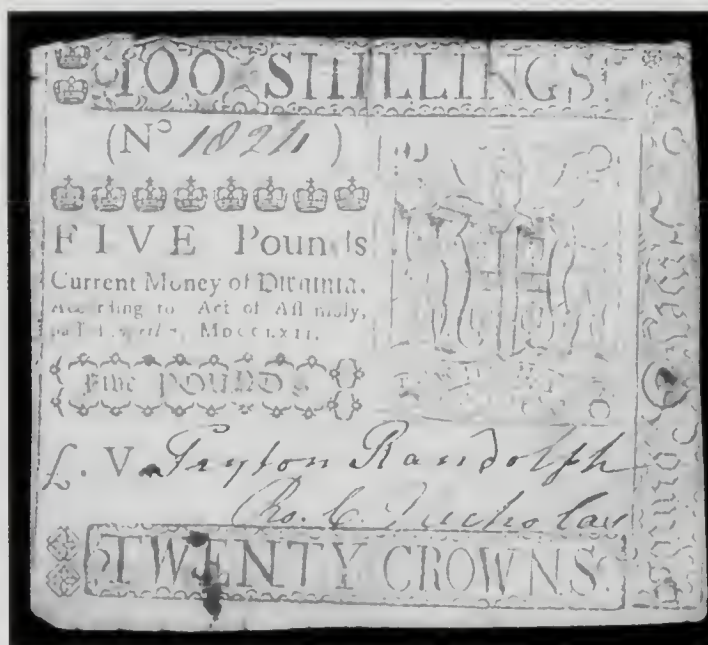 100 SHILLINGS.
(No 1824)
FIVE Pounds
Current Money of VIRGINIA,
According to Act of Assembly,
MDCCLXII.
Five POUNDS
£. V. Peyton Randolph
Ro. C. Nicholas
TWENTY CROWNS.